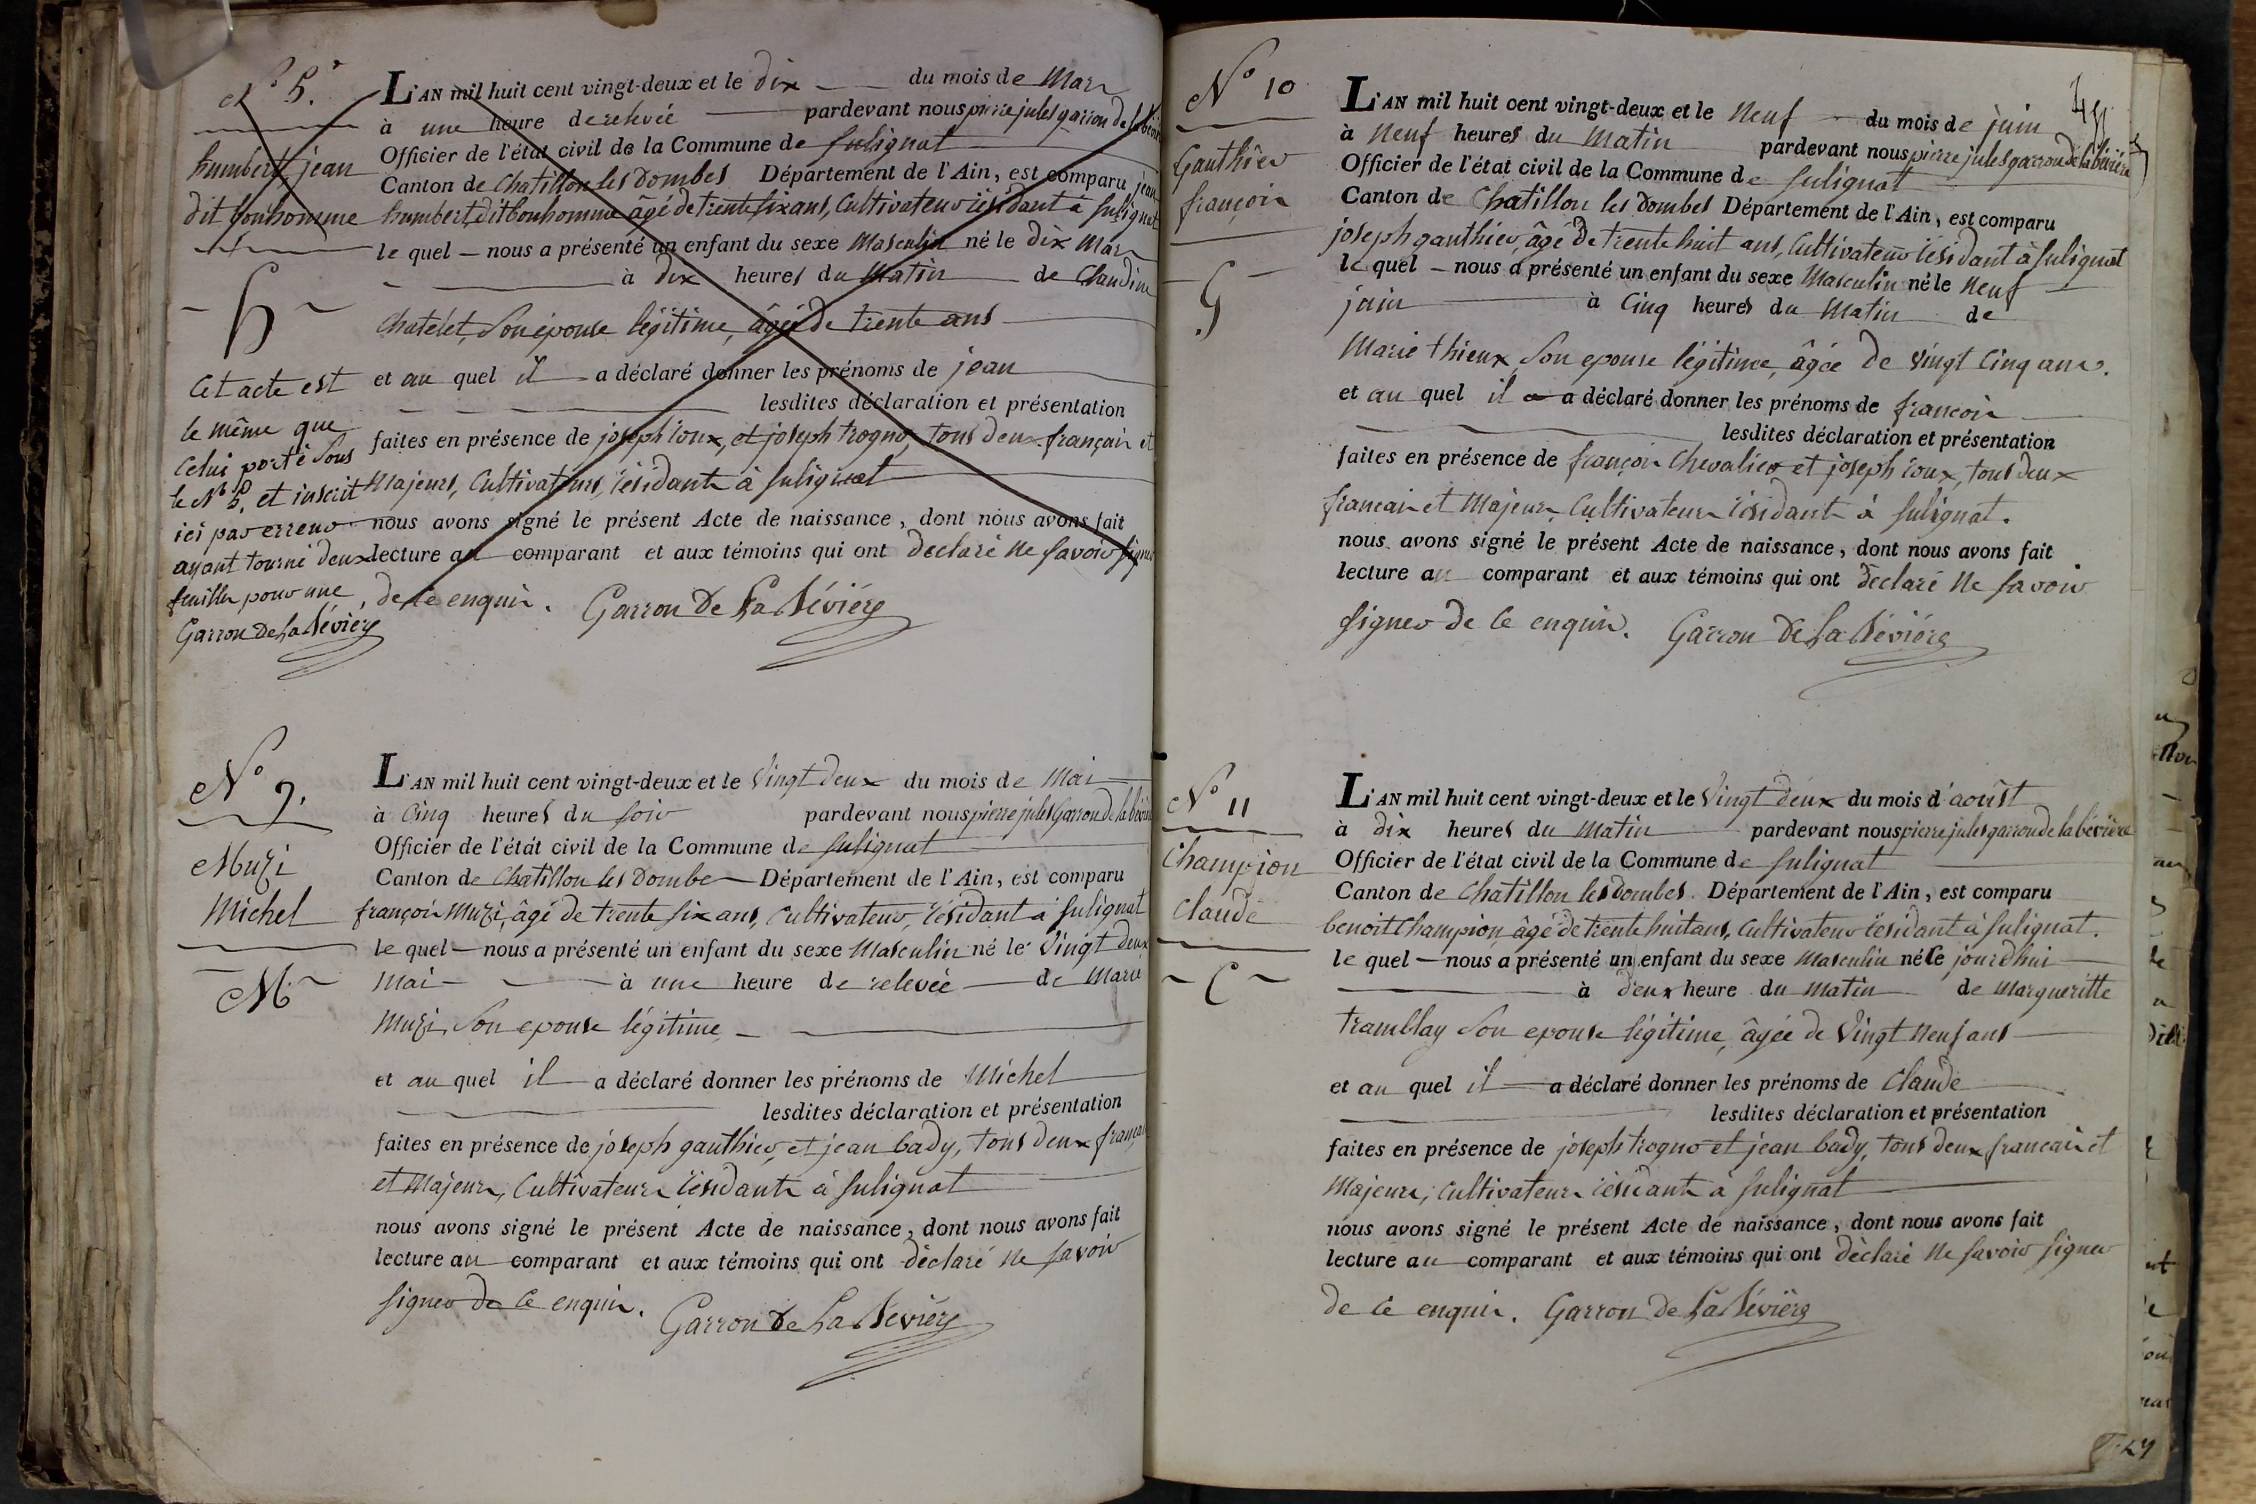 N° 5.
humbert jean
dit bonhomme
h
Cet acte est
le même que
celui porté sous
le N° 5, et inscrit
ici par erreur
ayant tourné deux
feuilles pour une
Garron De La Bévière
L'AN mil huit cent vingt-deux et le dix du mois de Mars
à une heure de relevée pardevant nous pierre jules garron de la bévière
Officier de l'état civil de la Commune de Sulignat
Canton de Chatillon les Dombes Département de l'Ain, est comparu jean
humbert dit bonhomme âgé de trente six ans, Cultivateur résidant à Sulignat
le quel nous a présenté un enfant du sexe Masculin né le dix Mars
à dix heures du Matin de Claudine
Chatelet, son épouse légitime, âgée de trente ans
et au quel il a déclaré donner les prénoms de jean
lesdites déclaration et présentation
faites en présence de joseph roux, et joseph trognо, tous deux français et
Majeurs, Cultivateurs, résidants à Sulignat
nous avons signé le présent Acte de naissance, dont nous avons fait
lecture au comparant et aux témoins qui ont déclaré ne savoir signer
de ce enquis. Garron De La Bévière
N° 9.
Muzi
Michel
M
L'AN mil huit cent vingt-deux et le vingt deux du mois de Mai
à Cinq heures du soir pardevant nous pierre jules Garron de la bévière
Officier de l'état civil de la Commune de Sulignat
Canton de Chatillon les Dombes Département de l'Ain, est comparu
françois Muzi, âgé de trente six ans, Cultivateur, résidant à Sulignat
le quel nous a présenté un enfant du sexe Masculin né le vingt deux
Mai à une heure de relevée de Marie
Muzi, son epouse légitime,
et au quel il a déclaré donner les prénoms de Michel
lesdites déclaration et présentation
faites en présence de joseph gauthier, et jean bady, tous deux français
et Majeurs, Cultivateurs résidants à Sulignat
nous avons signé le présent Acte de naissance, dont nous avons fait
lecture au comparant et aux témoins qui ont déclaré ne savoir
signer de ce enquis. Garron De La Bévière
N° 10
Gauthier
françois
G
L'AN mil huit cent vingt-deux et le Neuf du mois de juin
à Neuf heures du Matin pardevant nous pierre jules garron de la bévière
Officier de l'état civil de la Commune de Sulignat
Canton de Chatillon les Dombes Département de l'Ain, est comparu
joseph gauthier, âgé de trente huit ans, Cultivateur résidant à Sulignat
le quel nous a présenté un enfant du sexe Masculin né le Neuf
juin à Cinq heures du Matin de
Marie thieux, son epouse légitime, âgée de vingt Cinq ans.
et au quel il a déclaré donner les prénoms de françois
lesdites déclaration et présentation
faites en présence de françois Chevalier et joseph roux, tous deux
francais et Majeurs, Cultivateurs résidants à Sulignat.
nous avons signé le présent Acte de naissance, dont nous avons fait
lecture au comparant et aux témoins qui ont déclaré ne savoir
signer de ce enquis. Garron De La Bévière
N° 11
Champion
claude
C
L'AN mil huit cent vingt-deux et le vingt deux du mois d'aoûst
à dix heures du Matin pardevant nous pierre jules garron de la bévière
Officier de l'état civil de la Commune de Sulignat
Canton de Chatillon les dombes Département de l'Ain, est comparu
benoit Champion, âgé de trente huit ans, Cultivateur résidant à Sulignat.
le quel nous a présenté un enfant du sexe Masculin né ce jourd'hui
à deux heure du Matin de Margueritte
tramblay son epouse légitime, âgée de vingt neuf ans
et au quel il a déclaré donner les prénoms de Claude
lesdites déclaration et présentation
faites en présence de joseph trogno et jean bady, tous deux francais et
Majeurs, Cultivateurs résidants à Sulignat
nous avons signé le présent Acte de naissance, dont nous avons fait
lecture au comparant et aux témoins qui ont déclaré ne savoir signer
de ce enquis. Garron De La Bévière